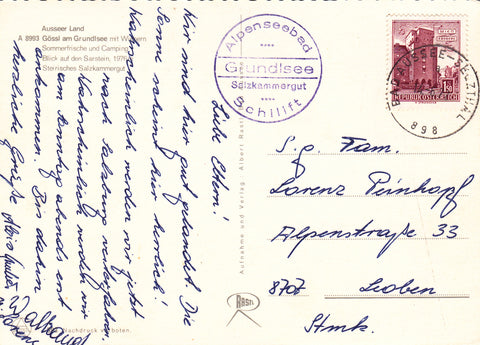 Ausseer Land
A 8993 Gössl am Grundlsee mit
Sommerfrische und Camping
Blick auf den Sarstein, 1975
Steirisches Salzkammergut
Liebe Eltern!
Wir sind hier gut gelandet. Die
Sonne scheint hier herrlich!
Wahrscheinlich werden wir jetzt
nach Salzburg weiterfahren.
Wahrscheinlich werden wir
am Sonntag abends erst
ankommen. Bis dahin
herzliche Grüße
Nachdruck verboten.
Aufnahme und Verlag: Albert Rastl
RASTL
Alpenseebad
Grundlsee
Salzkammergut
Schilift
REPUBLIK ÖSTERREICH
BAD AUSSEE-
898
S.g. Fam.
Lorenz Peinhopf
Alpenstraße 33
8707 Leoben
Stmk.